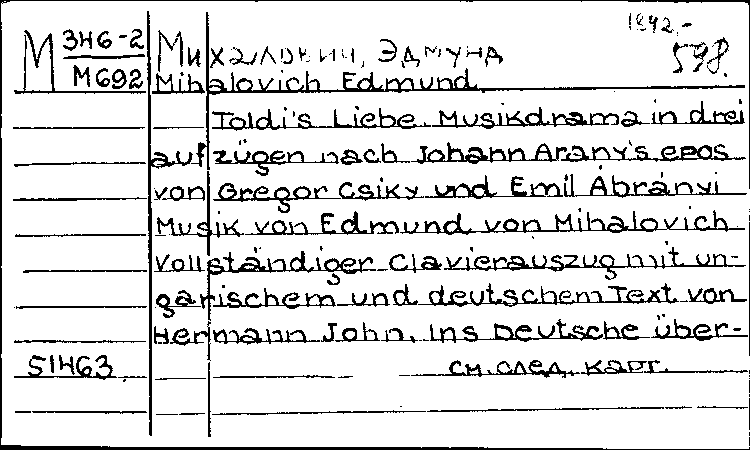 1842,-
М 346-2 Михалович, Эдмунд 598.
М692 Mihalovich Edmund.
Toldi's Liebe. Musikdrama in drei
aufzügen nach Johann Arany's epos
von Gregor Csiky und Emil Ábrányi
Musik von Edmund von Mihalovich
Vollständiger Clavierauszug mit un-
garischem und deutschem Text von
Hermann John. Ins Deutsche über-
51463. см. след. карт.